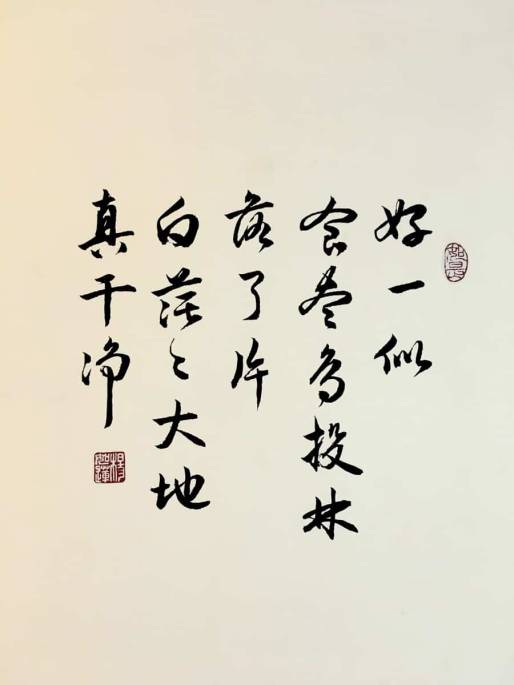 好一似
食尽鸟投林
落了片
白茫々大地
真干净